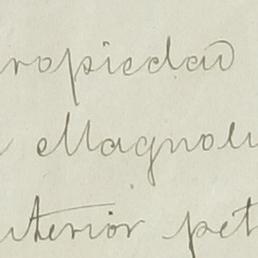 ropiedad
Magnoli
nterior pet